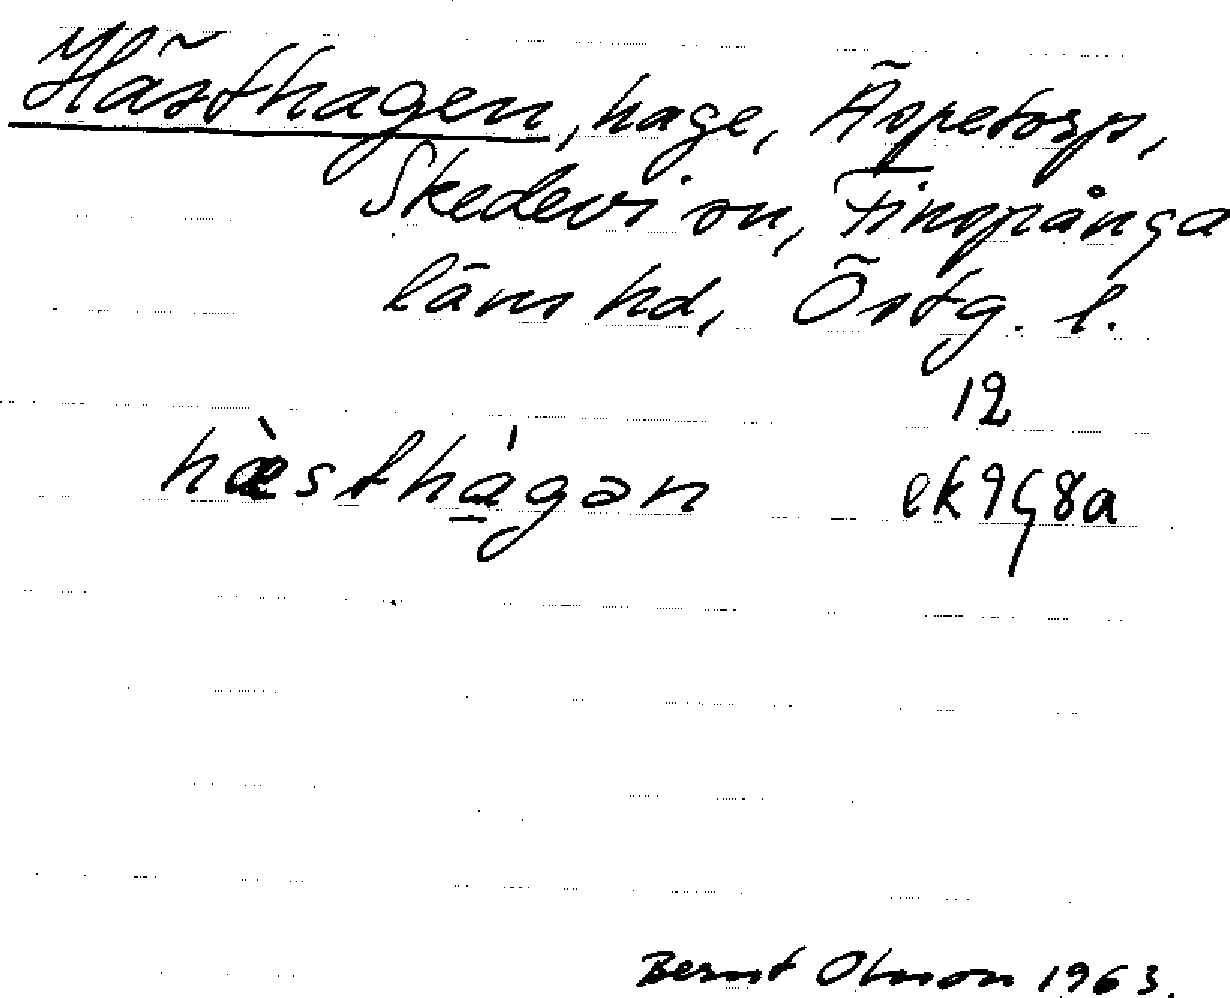 Hästhagen, hage, Äspetorp,
Skedevi sn, Finspånga
läns hd, Östg. l.
12
hæ̀sthá̱gən ek9G8a
Bernt Olsson 1963.